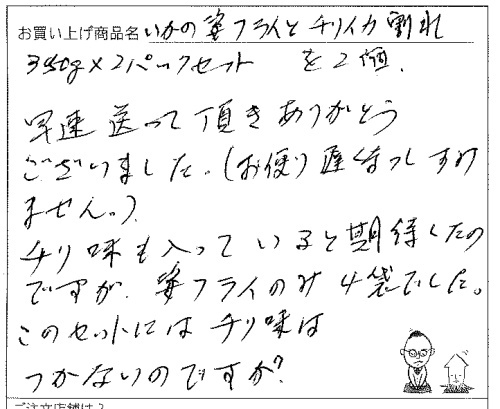 お買い上げ商品名 いかの姿フライとチリイカ割れ
350g×2パックセット を2個.
早速送って頂きありがとう
ございました。(お便り遅くなってすみ
ません。)
チリ味も入っていると期待したの
ですが、姿フライのみ4袋でした。
このセットにはチリ味は
つかないのですか?
ご注文店舗は?